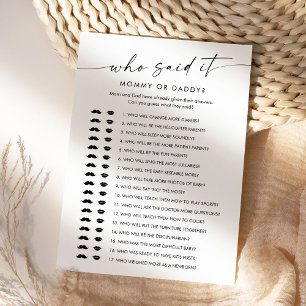 who said it
MOMMY OR DADDY?
Mom and Dad have already given their answers.
Can you guess what they said?
1. WHO WILL CHANGE MORE DIAPERS?
2. WHO WILL BE THE HELICOPTER PARENT?
3. WHO WILL SLEEP MORE SOUNDLY?
4. WHO WILL BE THE MORE PARENT?
5. WHO WILL BE THE FUN PARENT?
6. WHO WILL SING THE MOST LULLABIES?
7. WHO WILL THE BABY RESEMBLE MORE?
8. WHO WILL TAKE MORE PHOTOS OF BABY?
9. WHO WILL SAY 'NO' THE MOST?
10. WHO WILL TEACH THEM TO PLAY SPORTS?
11. WHO WILL ASK THE DOCTOR MORE QUESTIONS?
12. WHO WILL TEACH THEM HOW TO COOK?
13. WHO WILL PUT THE FURNITURE TOGETHER?
14. WHO WILL BE THE DISCIPLINARIAN?
15. WHO WAS THE MOST DIFFICULT BABY?
16. WHO WAS READY TO HAVE KIDS FIRST?
17. WHO WEIGHED MORE AS A NEWBORN?